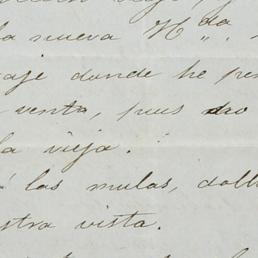 la nueva Hda. „
aje donde he pen
venta, pues no
la vieja.
las mulas, dolle
stra vista.